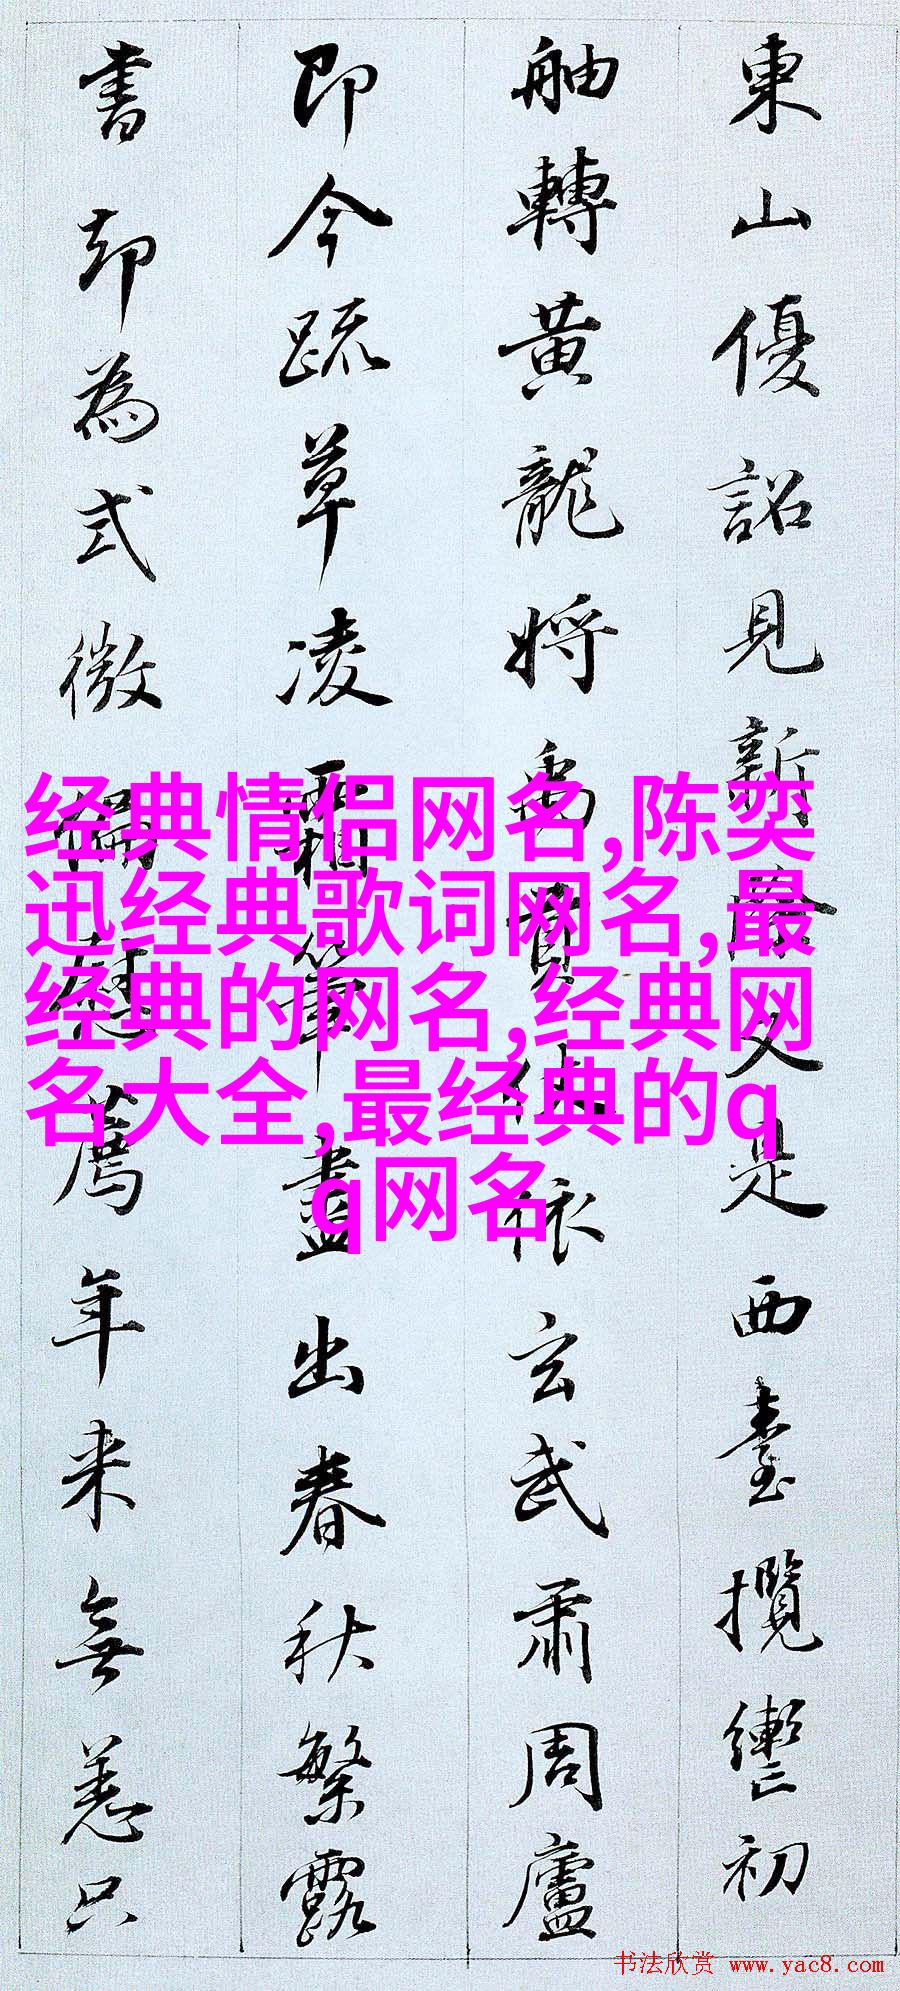 東山優詔見新除又是西臺攬轡初
舳轉黃龍將禹貢使依玄武肅周廬
即今疏草凌霜筆盡出春秋繁露
書却為式微偏慰薦年來無恙只
经典情侣网名,陈奕
迅经典歌词网名,最
经典的网名,经典网
名大全,最经典的q
q网名
书法欣赏 www.yac8.com